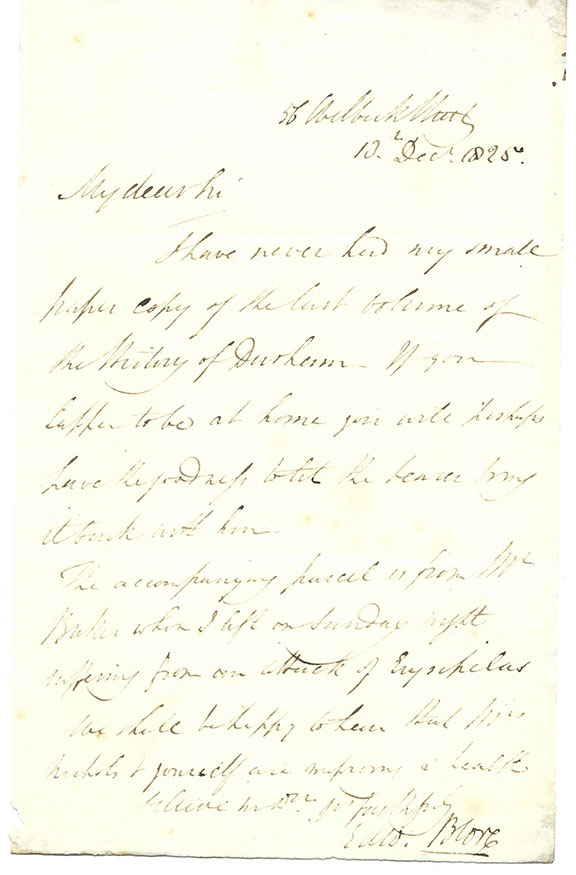 56 Welbeck Street
10th Decr. 1825.
My dear Sir
I have never had my small
paper copy of the last volume of
the History of Durham – If you
happen to be at home you will perhaps
have the goodness to let the bearer bring
it back with him.
The accompanying parcel is from Mr
Baker whom I left on Sunday night
suffering from an attack of Erysipelas
We shall be happy to hear that Mrs
Nichols & yourself are improving in health
believe me Dr Sir yr faithfully
Edwd. Blore